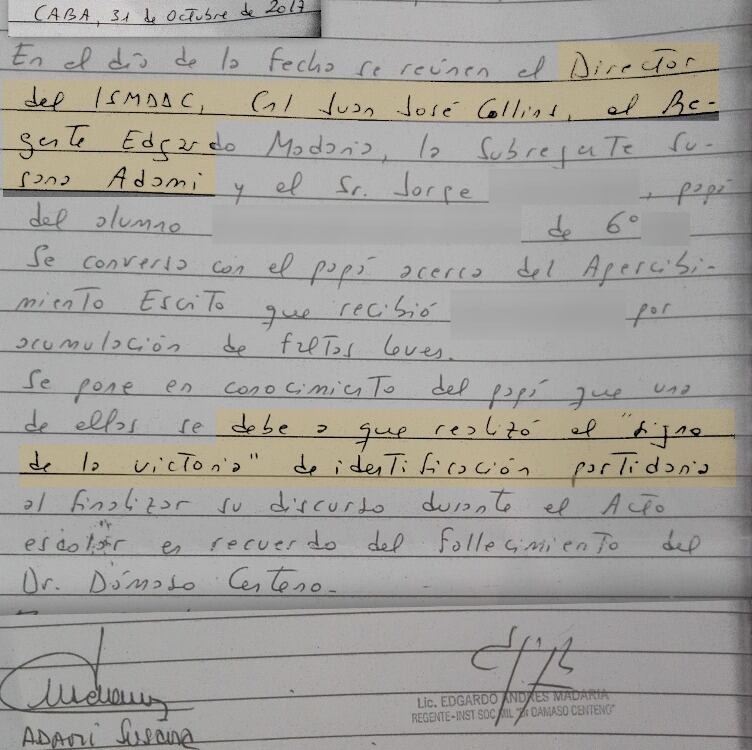 CABA, 31 de Octubre de 2017
En el día de la fecha se reúnen el Director
del ISMDDC, Cnl Juan José Collins, el Re-
gente Edgardo Madaria, la Subregente Su-
sana Adami y el Sr. Jorge , papá
del alumno de 6º
Se conversa con el papá acerca del Apercibi-
miento Escrito que recibió por
acumulación de faltas leves.
Se pone en conocimiento del papá que una
de ellas se debe a que realizó el "signo
de la victoria" de identificación partidaria
al finalizar su discurso durante el Acto
escolar en recuerdo del fallecimiento del
Dr. Dámaso Centeno.
ADAMI Susana
Lic. EDGARDO ANDRES MADARIA
REGENTE-INST SOC MIL "Dr DAMASO CENTENO"